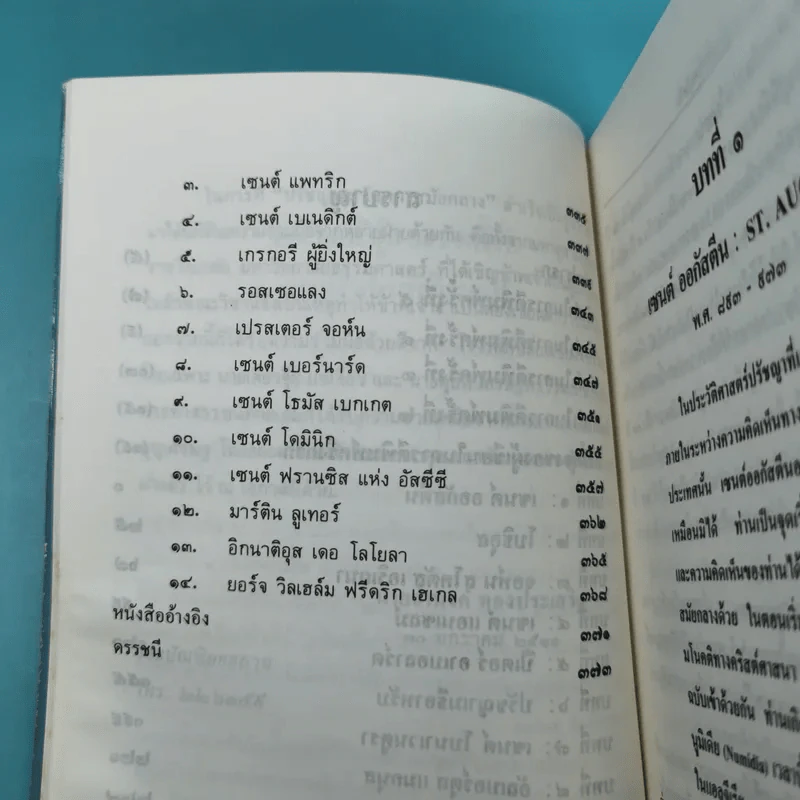 ๓. เซนต์ แพทริก ๓๓๕
๔. เซนต์ เบเนดิกต์ ๓๓๗
๕. เกรกอรี ผู้ยิ่งใหญ่ ๓๓๙
๖. รอสเซอแลง ๓๔๑
๗. เปรสเตอร์ จอห์น ๓๔๕
๘. เซนต์ เบอร์นาร์ด ๓๔๗
๙. เซนต์ โธมัส เบกเกต ๓๕๑
๑๐. เซนต์ โดมินิก ๓๕๕
๑๑. เซนต์ ฟรานซิส แห่ง อัสซีซี ๓๕๗
๑๒. มาร์ติน ลูเทอร์ ๓๖๒
๑๓. อิกนาติอุส เดอ โลโยลา ๓๖๕
๑๔. ยอร์จ วิลเฮล์ม ฟรีดริก เฮเกล ๓๖๘
หนังสืออ้างอิง ๓๗๑
ดรรชนี ๓๗๓
บทที่ ๑
เซนต์ ออกัสตีน : ST. AUG
พ.ศ. ๘๙๓ - ๙๗๓
ในประวัติศาสตร์ปรัชญาที่เ
ภายในระหว่างความคิดเห็นทาง
ประเทศนั้น เซนต์ออกัสตีนอ
เหมือนมิได้ ท่านเป็นจุดเริ่
และความคิดเห็นของท่านได้
สมัยกลางด้วย ในตอนเริ่ม
มโนคติทางคริสต์ศาสนา
ฉบับเข้าด้วยกัน ท่านเกิ
นูมิเดีย (Numidia) เวลาที่
ในแอลจีเรีย